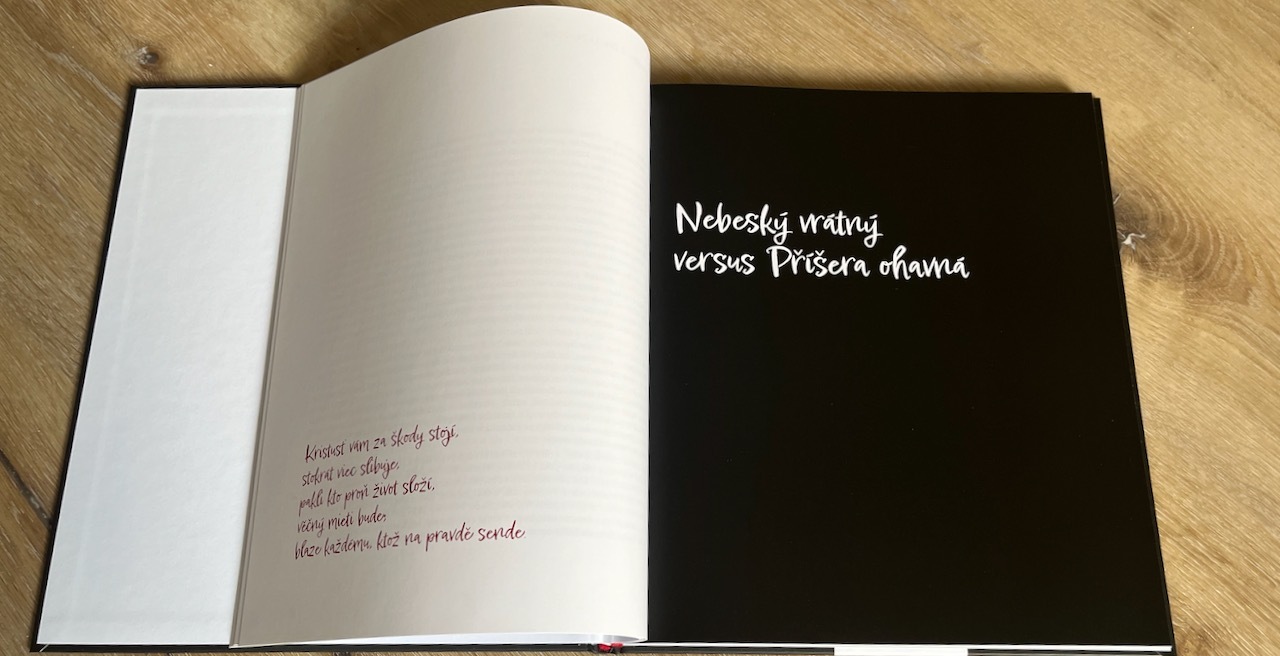 Kristusť vám za škody stojí,
stokrát viec slibuje,
pakli kto proň život složí,
věčný mieti bude;
blaze každému, ktož na pravdě sende.
Nebeský vrátný
versus Příšera ohavná